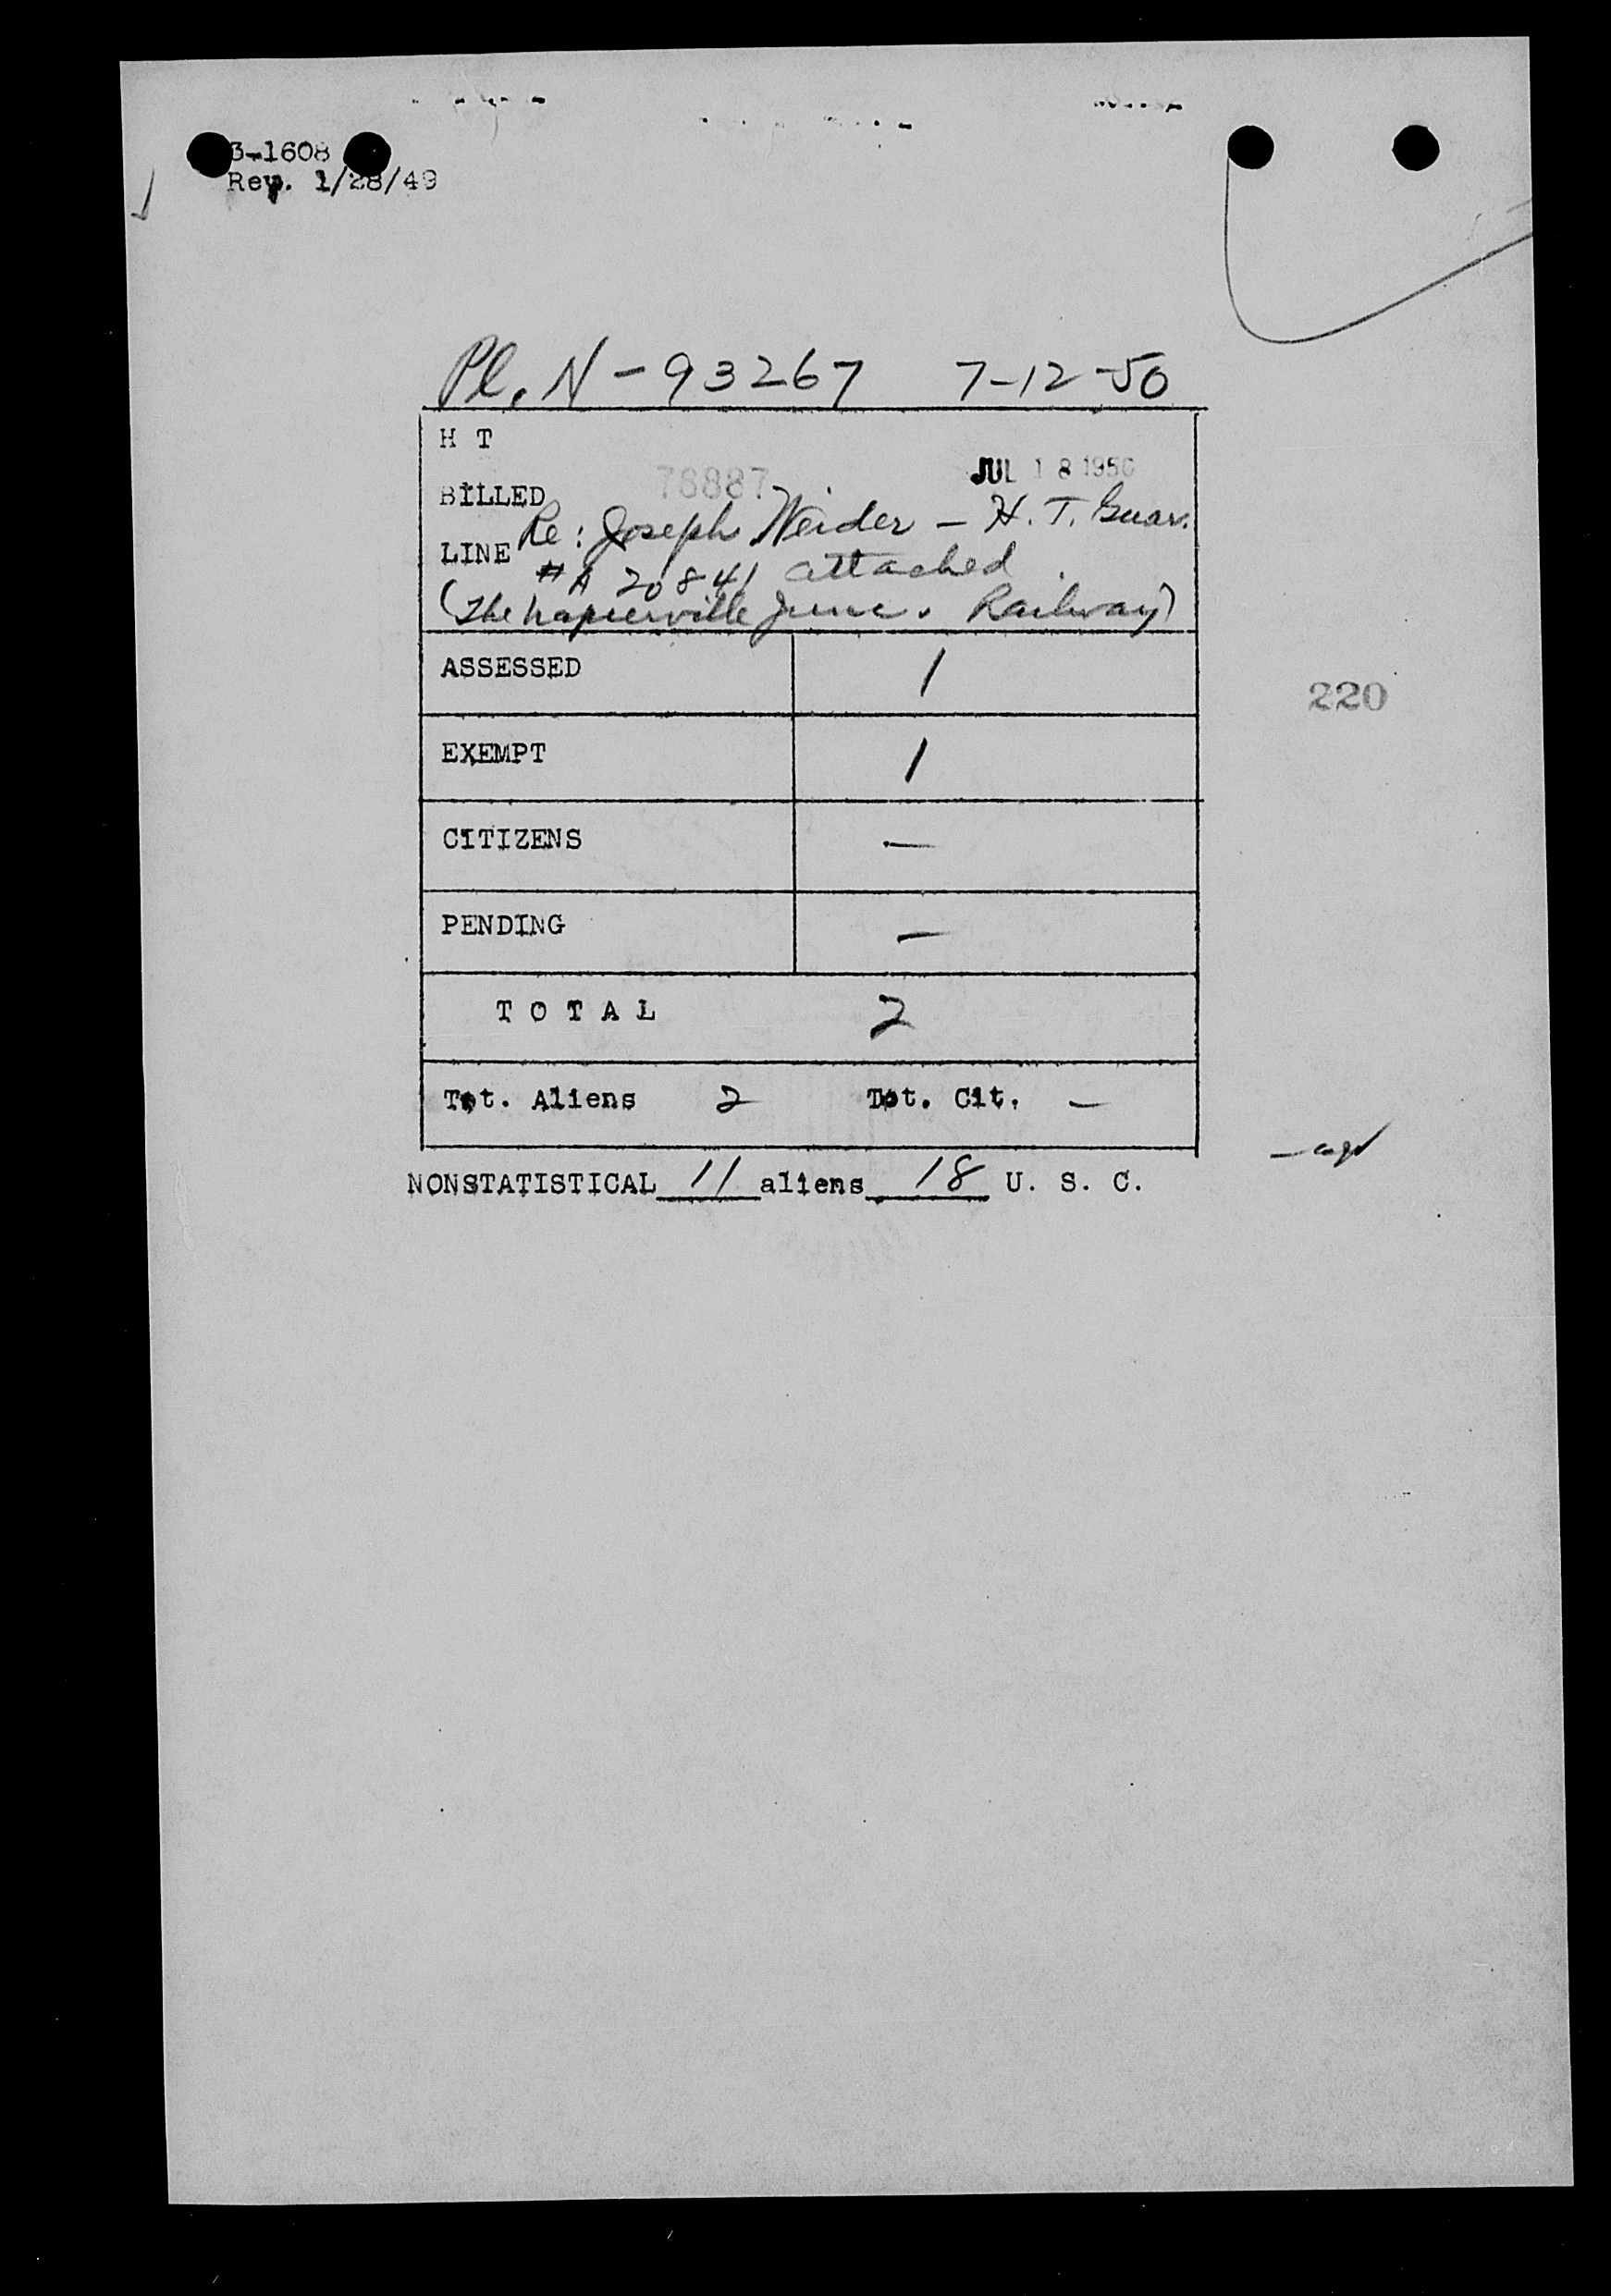 3-1608
Rev. 1/28/49
Pl. N-93267 7-12-50
H T
JUL 18 1950
BILLED 78887
Re: Joseph Weider - H. T. Guar.
LINE # A 20841 attached
(The Napierville Junc. Railway)
ASSESSED 1
220
EXEMPT 1
CITIZENS —
PENDING —
TOTAL 2
Tot. Aliens 2 Tot. Cit. —
NONSTATISTICAL 11 aliens 18 U. S. C.